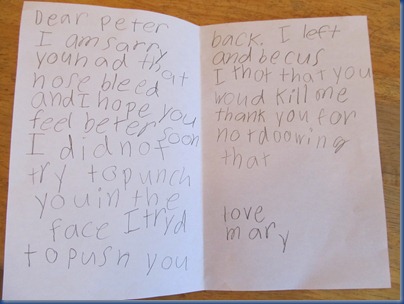 Dear Peter
I am sarry
you had that
nose bleed
and I hope you
feel beter soon
I did not
try to punch
you in the
face I tryd
to push you
back. I left
and becus
I thot that you
woud kill me
thank you for
not doowing
that
love
mary